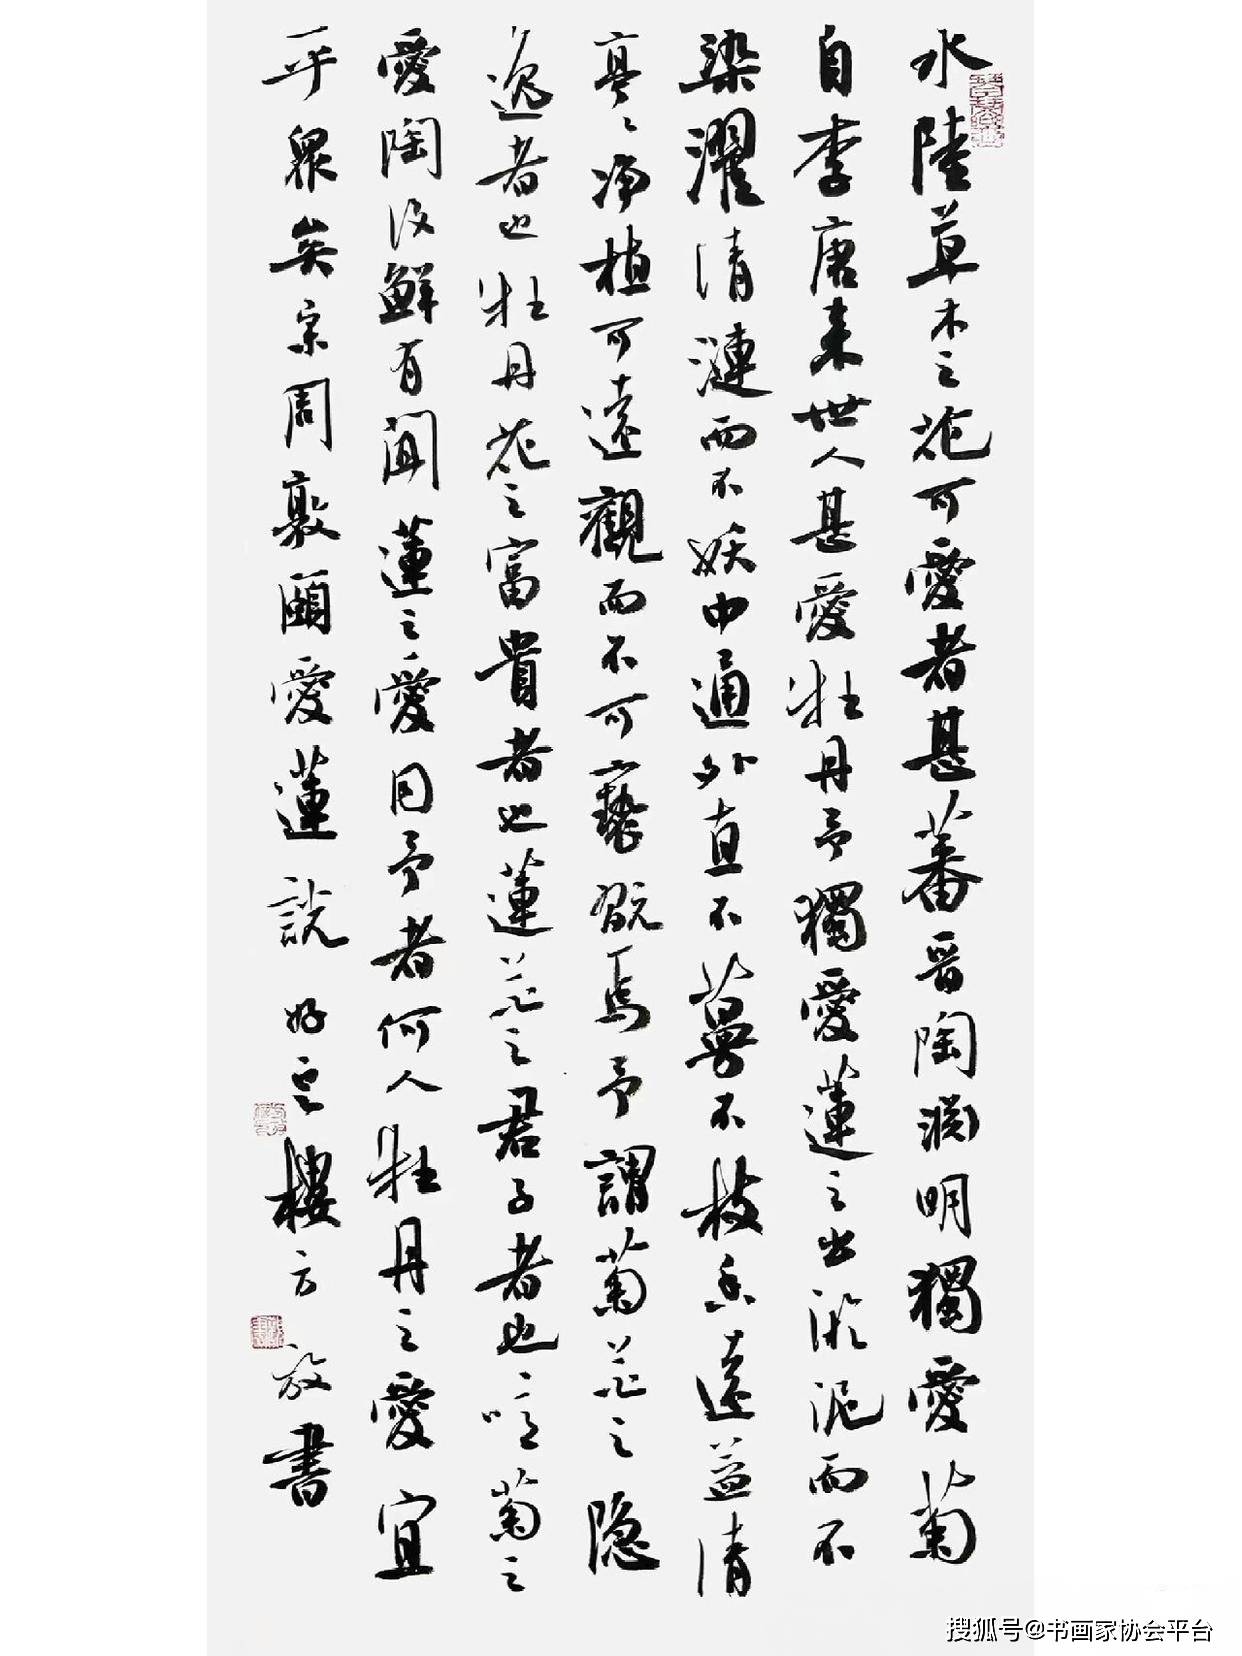 水陸草木之花可愛者甚蕃晋陶渕明獨愛菊
自李唐来世人甚愛牡丹予獨愛蓮之出淤泥而不
染濯清漣而不妖中通外直不蔓不枝香遠益清
亭々净植可遠觀而不可褻翫焉予謂菊花之隐
逸者也牡丹花之富貴者也蓮花之君子者也噫菊之
愛陶後鮮有聞蓮之愛同予者何人牡丹之愛宜
乎眾矣宋周敦頤愛蓮説 好樓方放書
搜狐号@书画家协会平台